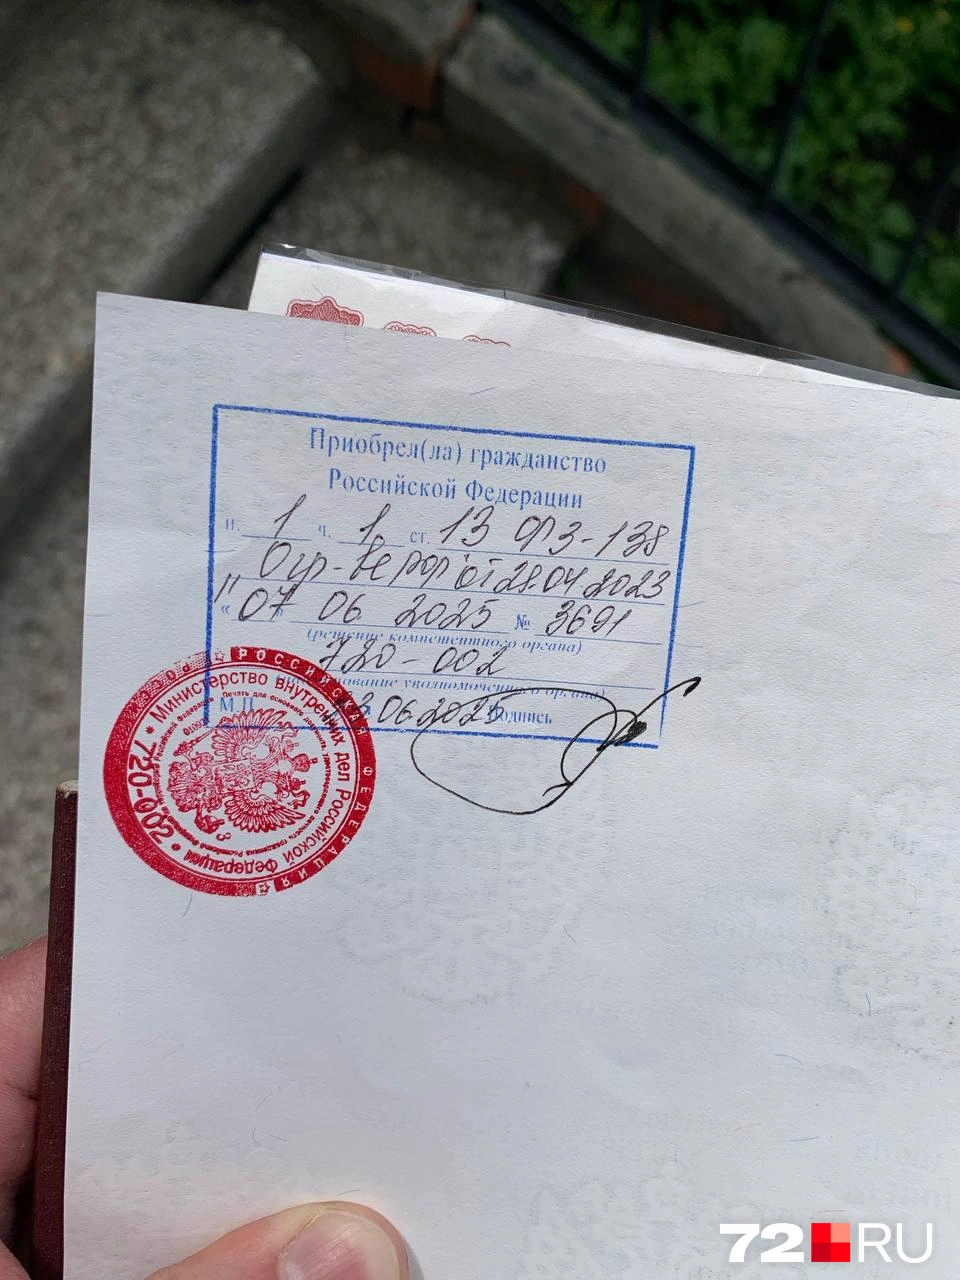 Приобрел(ла) гражданство
Российской Федерации
п. 1 ч. 1. ст. 13 ФЗ-138
О гр-ве РФ от 28.04.2023
"07 06 2025 № 3691
(решение компетентного органа)
720-002
уполномоченного органа)
М.П. 06.2025 Подпись
РОССИЙСКАЯ ФЕДЕРАЦИЯ
Министерство внутренних дел Российской Федерации
72 RU